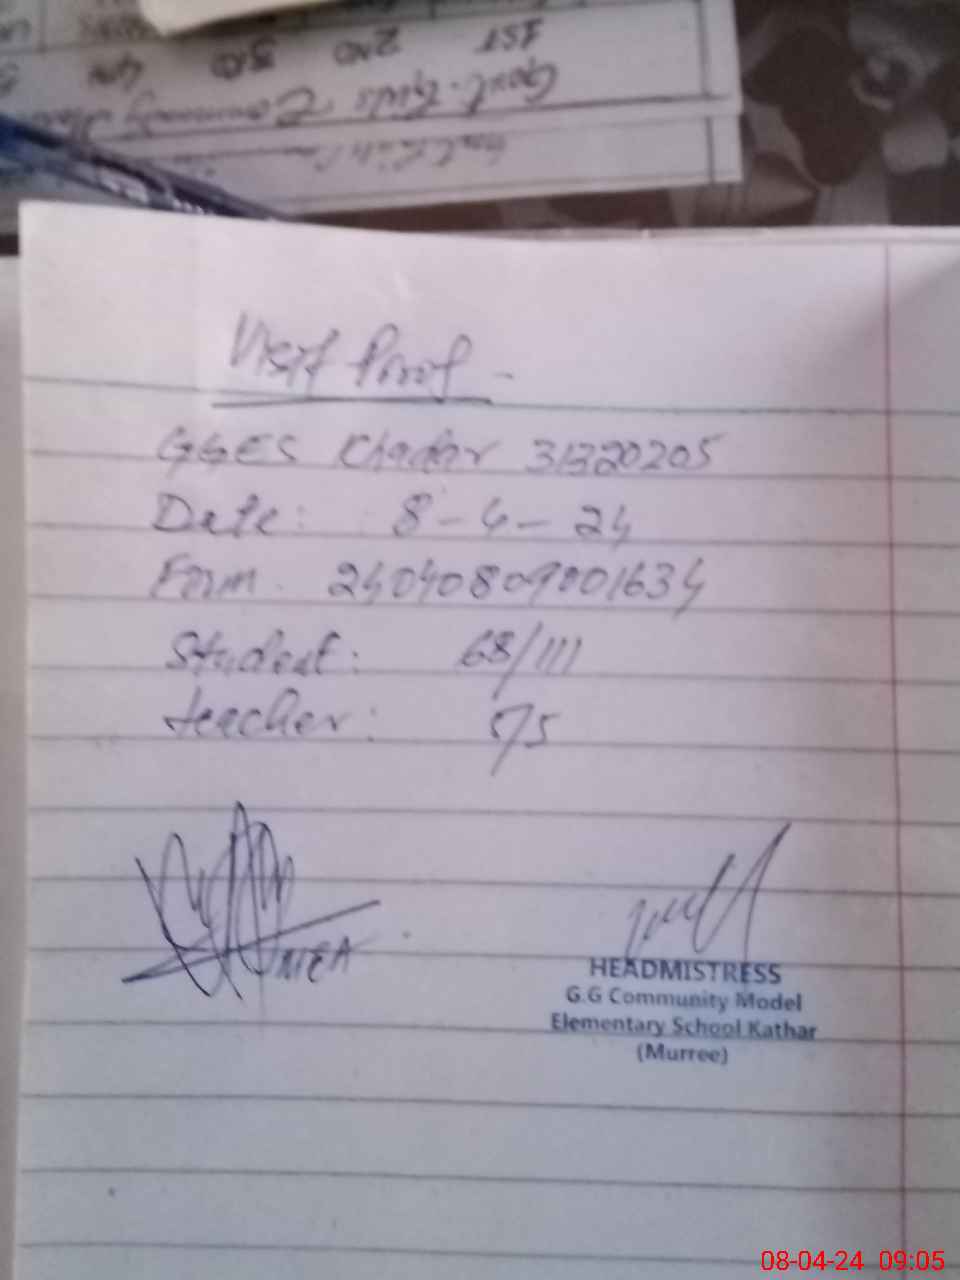 IST 2ND 3RD 4TH
Govt. Girls Community
Visit Proof -
GGES Khadar 31320205
Date: 8-4-24
Form. 24040809001634
Student: 68/111
teacher: 5/5
MEA
HEADMISTRESS
G.G Community Model
Elementary School Kathar
(Murree)
08-04-24 09:05